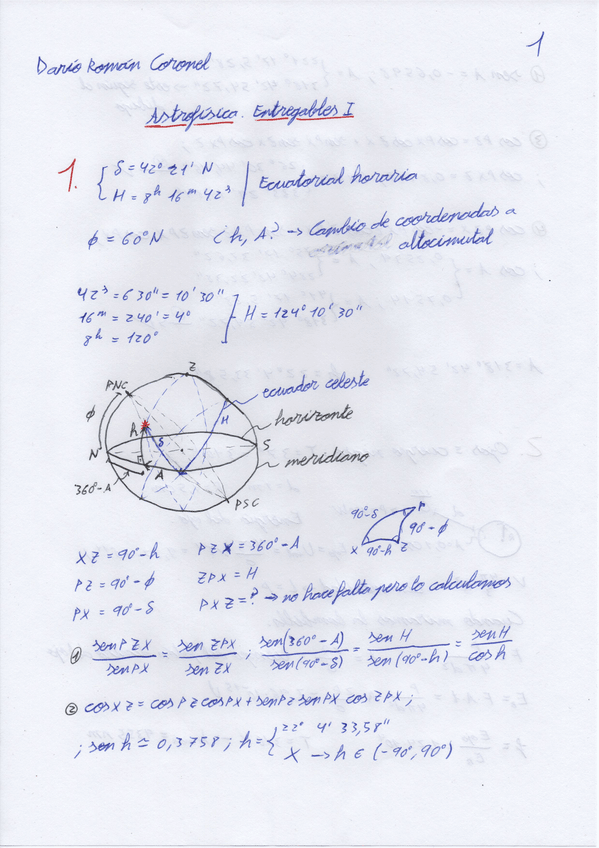 1
Darío Román Coronel
Astrofísica. Entregables I
1. { δ = 42° 21' N
H = 8h 16m 42s | Ecuatorial horaria
ϕ = 60° N ¿h, A? → Cambio de coordenadas a
altocimutal
42s = 630" = 10' 30"
16m = 240' = 4°
8h = 120°
} H = 124° 10' 30"
Z
PNC
ecuador celeste
ϕ
H
horizonte
h
δ
N
S
A
meridiano
360°-A
PSC
90°-δ P
90°-ϕ
X 90°-h Z
XZ = 90°-h PZX = 360°-A
PZ = 90°-ϕ ZPX = H
PX = 90°-δ PXZ = ? → no hace falta pero lo calculamos
① sen PZX / sen PX = sen ZPX / sen ZX ; sen(360°-A) / sen(90°-δ) = sen H / sen(90°-h) = sen H / cos h
② cos XZ = cos PZ cos PX + sen PZ sen PX cos ZPX ;
; sen h ≃ 0,3758 ; h = { 22° 4' 33,58"
X → h ∈ (-90°, 90°)